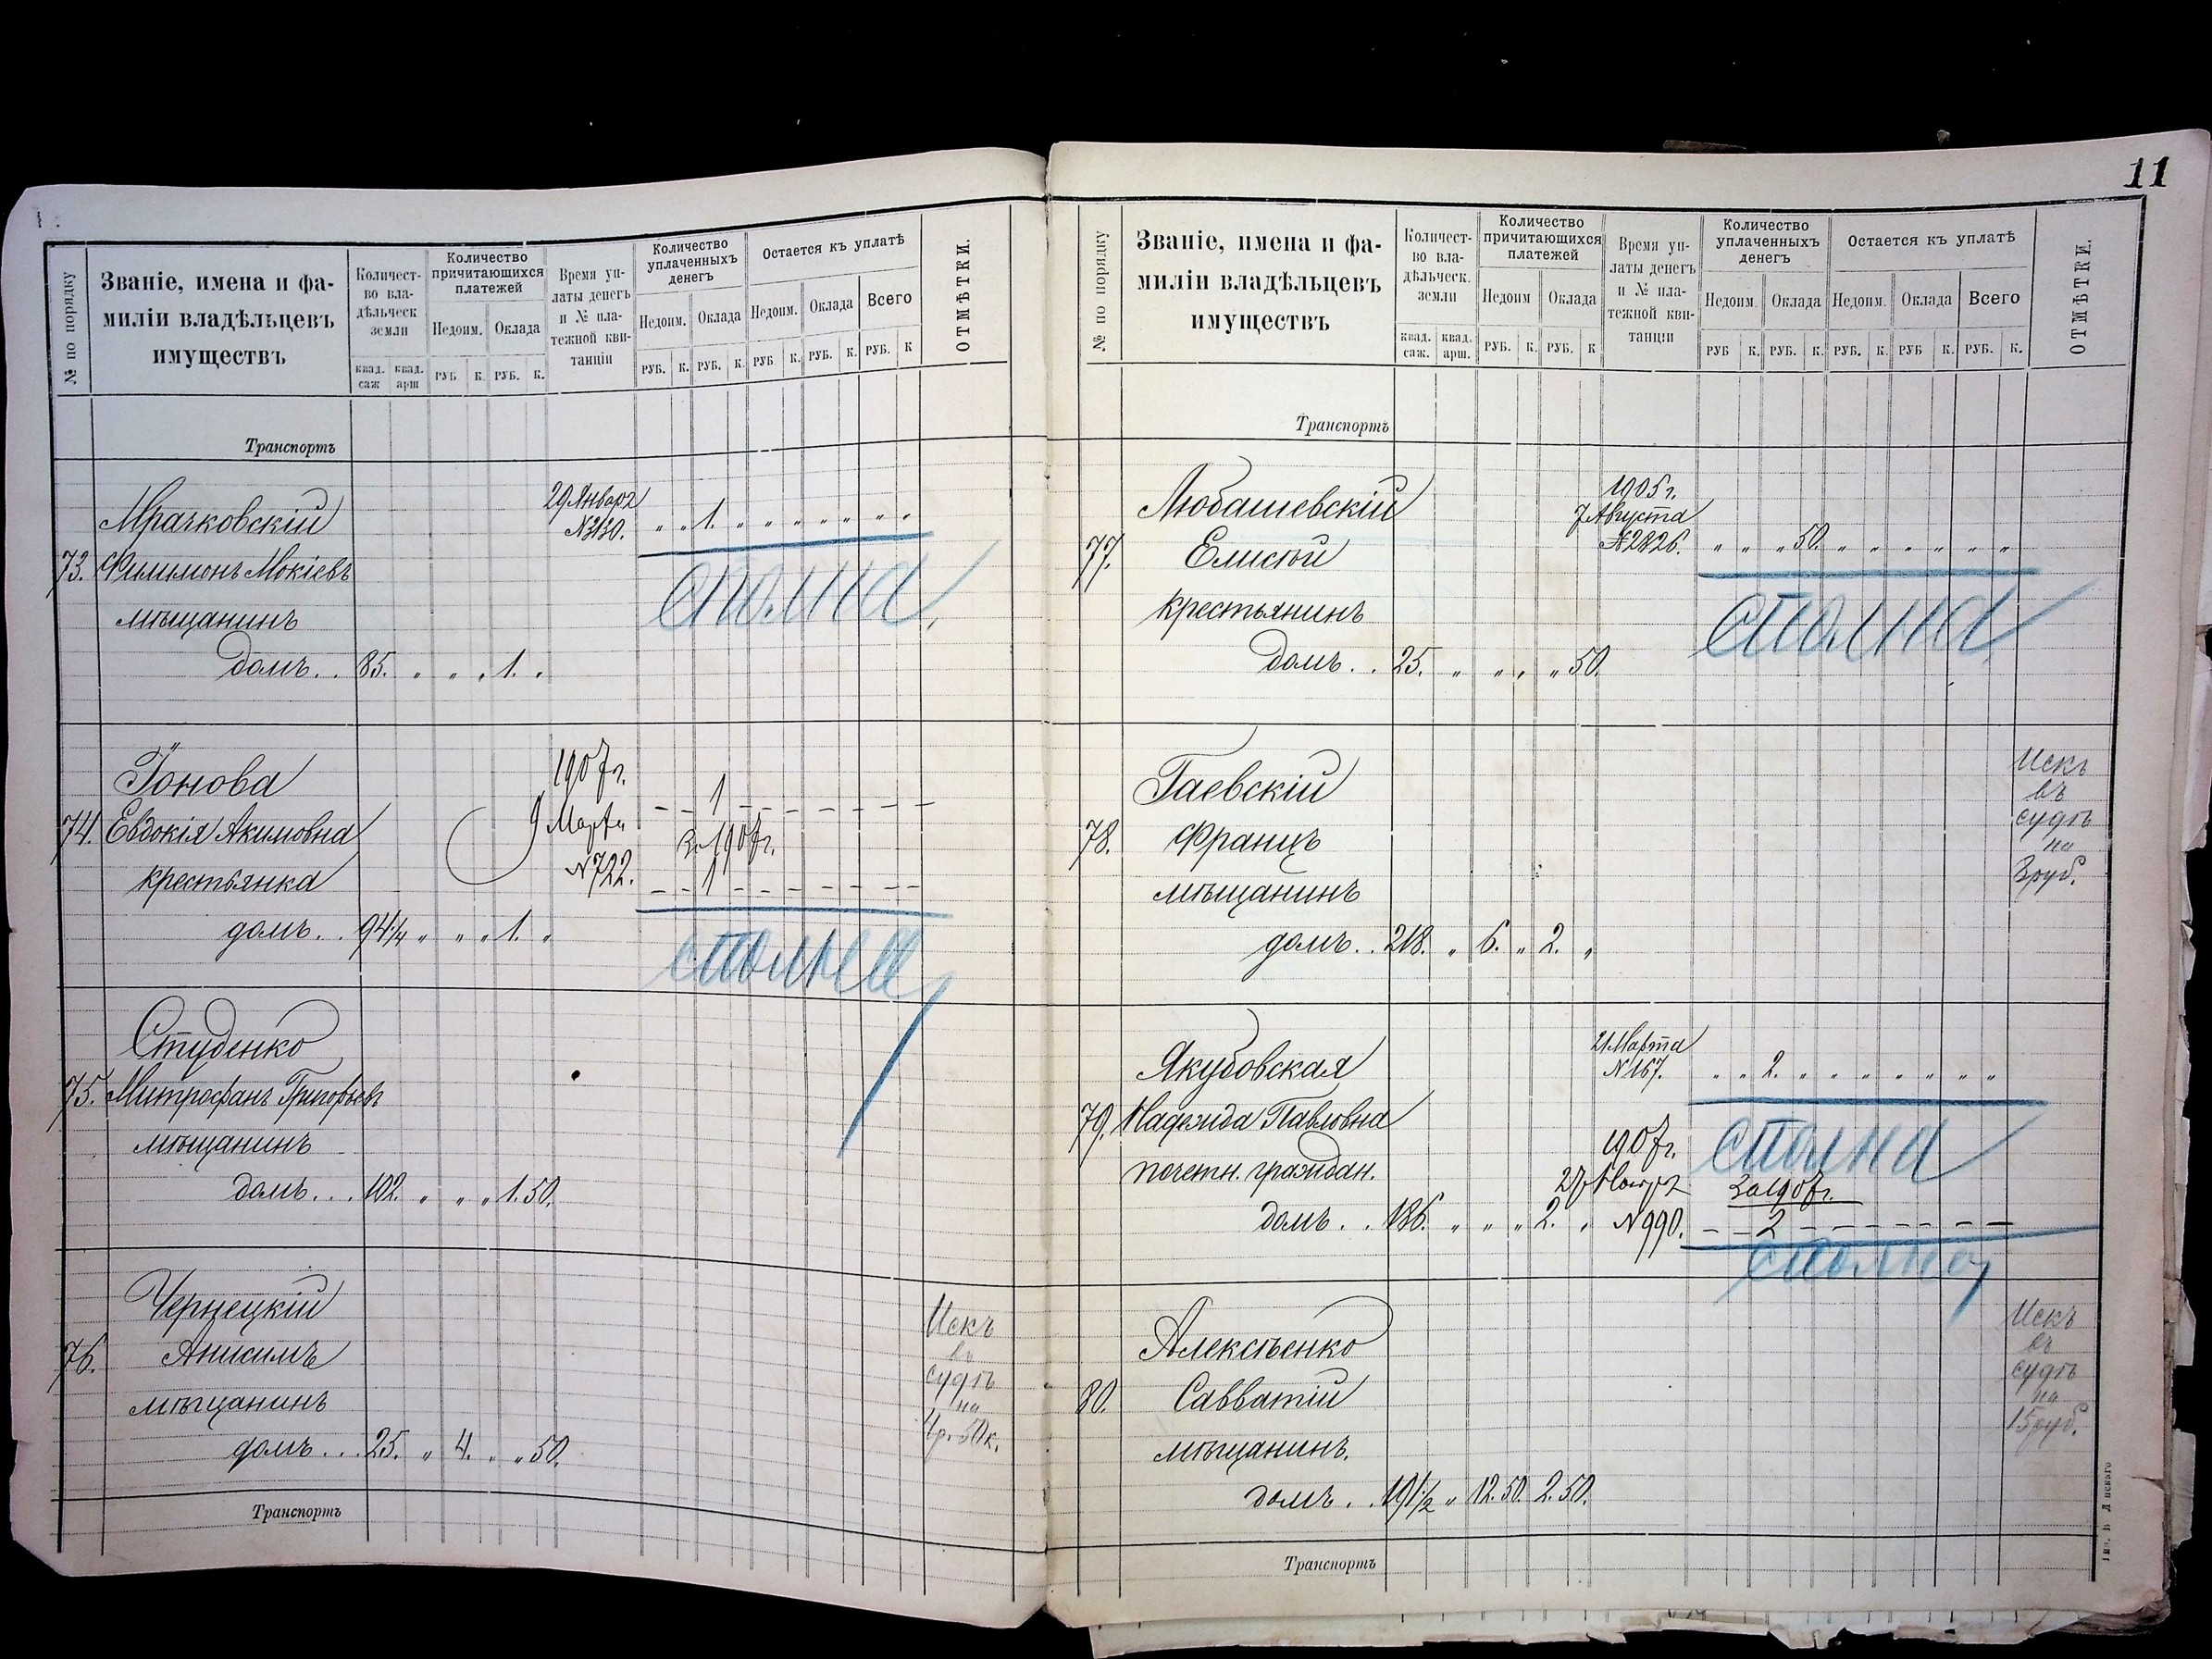 11
№ по порядку
Званіе, имена и фа-
миліи владѣльцевъ
имуществъ
Количест-
во вла-
дѣльческ
земли
квад.
саж
квад.
арш
Количество
причитающихся
платежей
Недоим.
Оклада
РУБ К. РУБ. К.
Время уп-
латы денегъ
и № пла-
тежной кви-
танціи
Количество
уплаченныхъ
денегъ
Недоим.
Оклада
РУБ. К. РУБ. К.
Остается къ уплатѣ
Недоим.
Оклада
Всего
РУБ К. РУБ. К. РУБ. К
ОТМѢТКИ.
Транспортъ
Мрачковскій
73. Филимонъ Мокіевъ
мѣщанинъ
домъ.. 85. „ „ „ 1. „
29 Января
№3130. „ „ 1. „ „ „ „ „ „ „
сполна
Іонова
74. Евдокія Акимовна
крестьянка
домъ.. 94¼ „ „ „ 1. „
1907г.
9 Марта
№722.
– – 1 – – – – – – –
За 1907г.
– – 1 – – – – – – –
сполна
Студенко
75. Митрофанъ Григорьевъ
мѣщанинъ
домъ... 102. „ „ „ 1.50.
Чернецкій
76. Анисимъ
мѣщанинъ
домъ... 25. „ 4. „ „ 50.
Искъ
въ
судѣ
на
4р. 50к.
Транспортъ
№ по порядку
Званіе, имена и фа-
миліи владѣльцевъ
имуществъ
Количест-
во вла-
дѣльческ.
земли
квад.
саж.
квад.
арш.
Количество
причитающихся
платежей
Недоим
Оклада
РУБ. К. РУБ. К
Время уп-
латы денегъ
и № пла-
тежной кви-
танціи
Количество
уплаченныхъ
денегъ
Недоим.
Оклада
РУБ К. РУБ. К.
Остается къ уплатѣ
Недоим.
Оклада
Всего
РУБ. К. РУБ К. РУБ. К.
ОТМѢТКИ.
Транспортъ
Любашевскій
77. Елисѣй
крестьянинъ
домъ.. 25. „ „ „ „ 50.
1905г.
7 Августа
№2826. „ „ „ 50. „ „ „ „ „ „
сполна
Гаевскій
78. Францъ
мѣщанинъ
домъ.. 218. „ 6. „ 2. „
Искъ
въ
судѣ
на
8руб.
Якубовская
79. Надежда Павловна
почетн. граждан.
домъ.. 186. „ „ „ 2. „
21 Марта
№167. „ „ 2. „ „ „ „ „ „ „
сполна
1907г.
27 Января
№990.
За 1907г.
– – 2 – – – – – – –
сполна
Алексѣенко
80. Савватій
мѣщанинъ.
домъ.. 191½ „ 12.50. 2.50.
Искъ
въ
судѣ
на
15руб.
Транспортъ